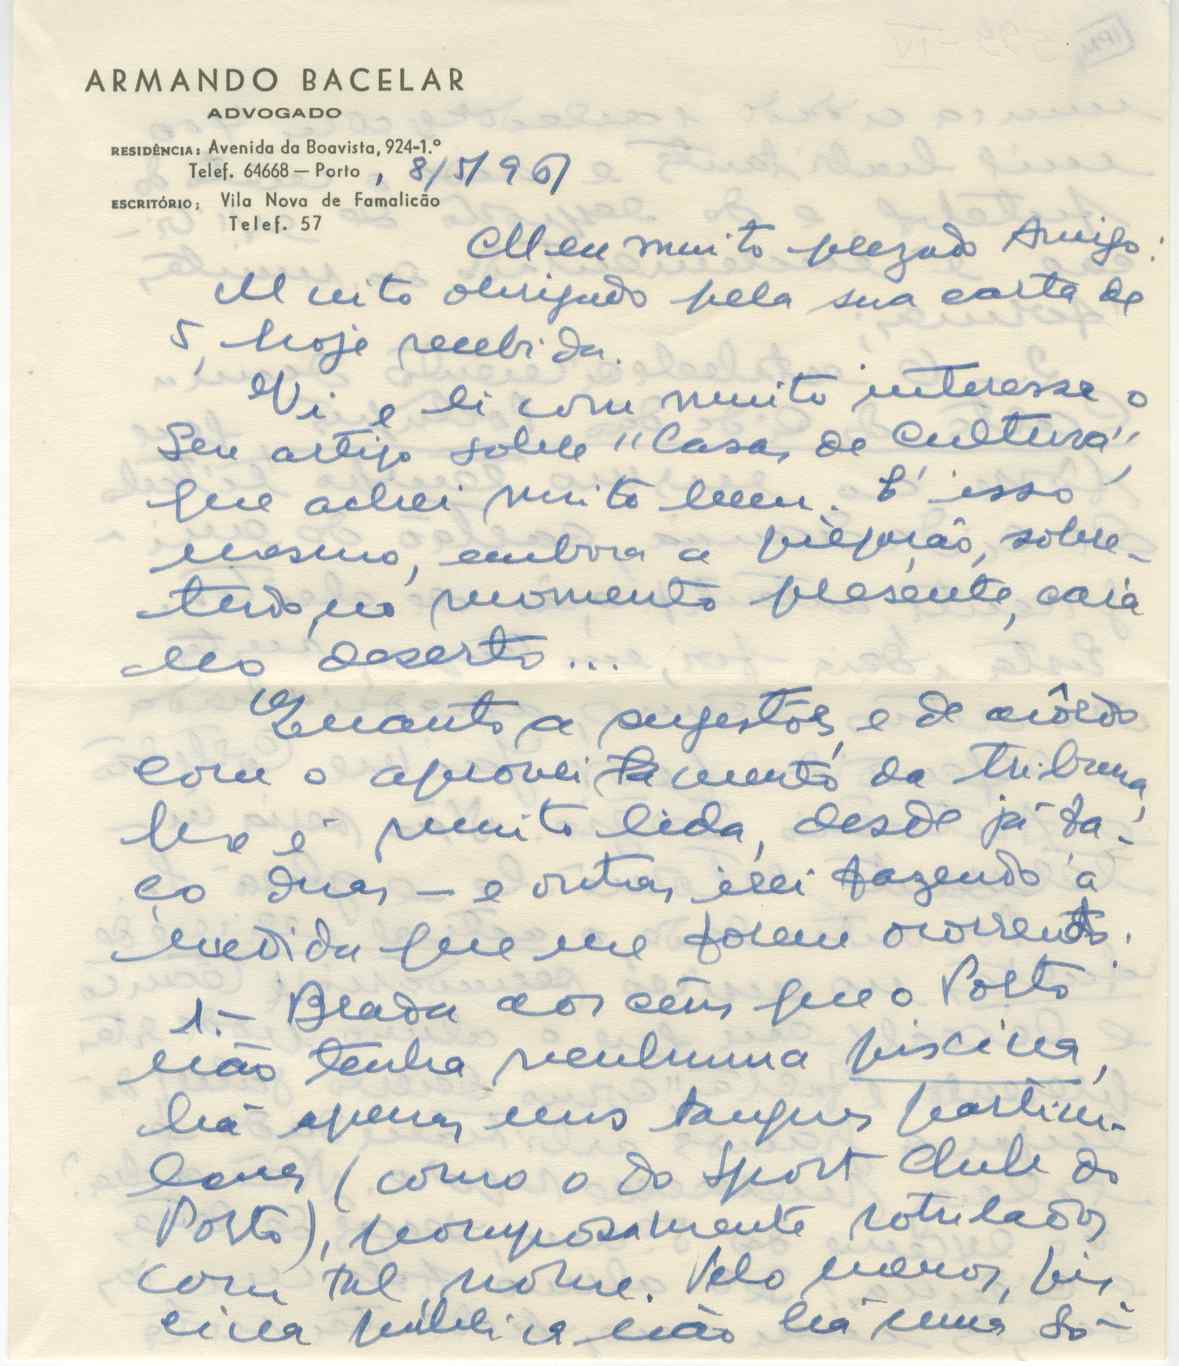 ARMANDO BACELAR
ADVOGADO
RESIDÊNCIA: Avenida da Boavista, 924-1.º
Telef. 64668 — Porto, 8/5/961
ESCRITÓRIO: Vila Nova de Famalicão
Telef. 57
Meu muito prezado Amigo:
Muito obrigado pela sua carta de
5, hoje recebida.
Vi e li com muito interesse o
Seu artigo sobre "Casas de Cultura",
que achei muito bem. É isso
mesmo, embora a pregação, sobre-
tudo, no momento presente, caia
no deserto...
Quanto a sugestões, e de acôrdo
com o aproveitamento da tribuna,
que é muito lida, desde já fa-
ço duas — e outras irei fazendo à
medida que me forem ocorrendo.
1.— Brada aos céus que o Porto
não tenha nenhuma piscina,
há apenas uns tanques particu-
lares (como o do Sport Clube do
Porto), pomposamente rotulados
com tal nome. Pelo menos, pis
cina pública não há uma só